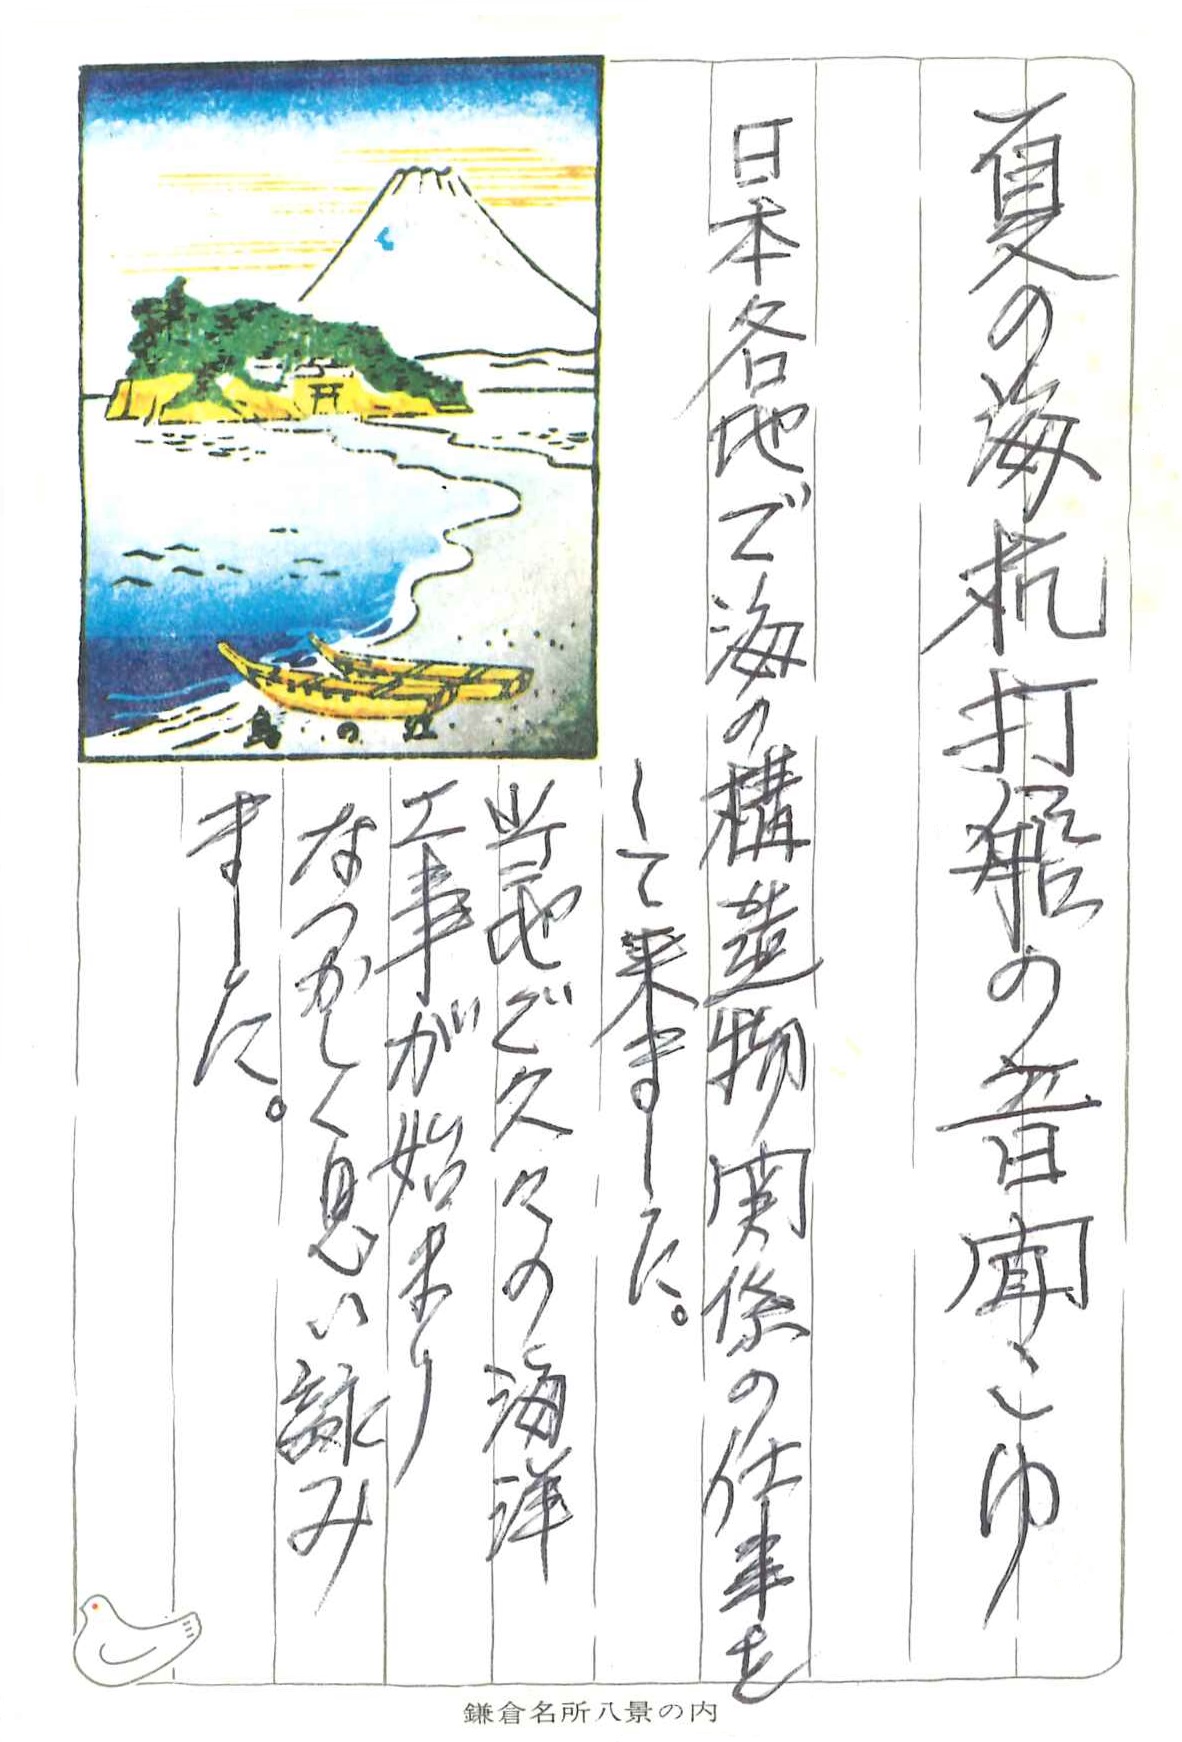 夏の海杭打船の音聞こゆ
日本各地で海の構造物関係の仕事を
して来ました。
当地で久々の海洋
工事が始まり
なつかしく思い詠み
ました。
江の島
鎌倉名所八景の内